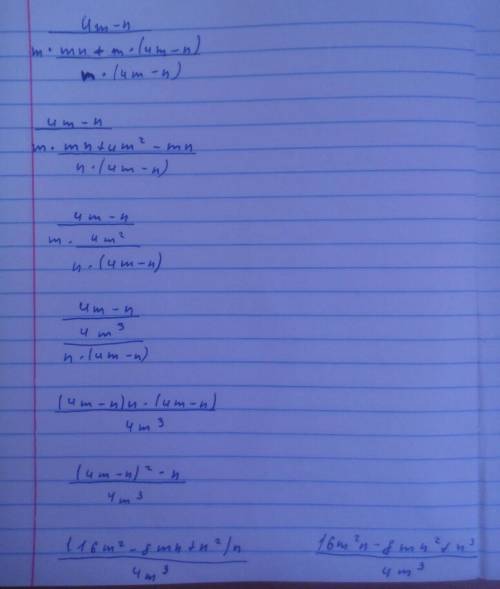 4m-n
m · mn + m · (4m-n)
n · (4m-n)
4m-n
m · mn + 4m² - mn
n · (4m-n)
4m-n
m · 4m²
n · (4m-n)
4m-n
4m³
n · (4m-n)
(4m-n)n · (4m-n)
4m³
(4m-n)² · n
4m³
(16m² - 8mn + n²)n
4m³
16m²n - 8mn² + n³
4m³